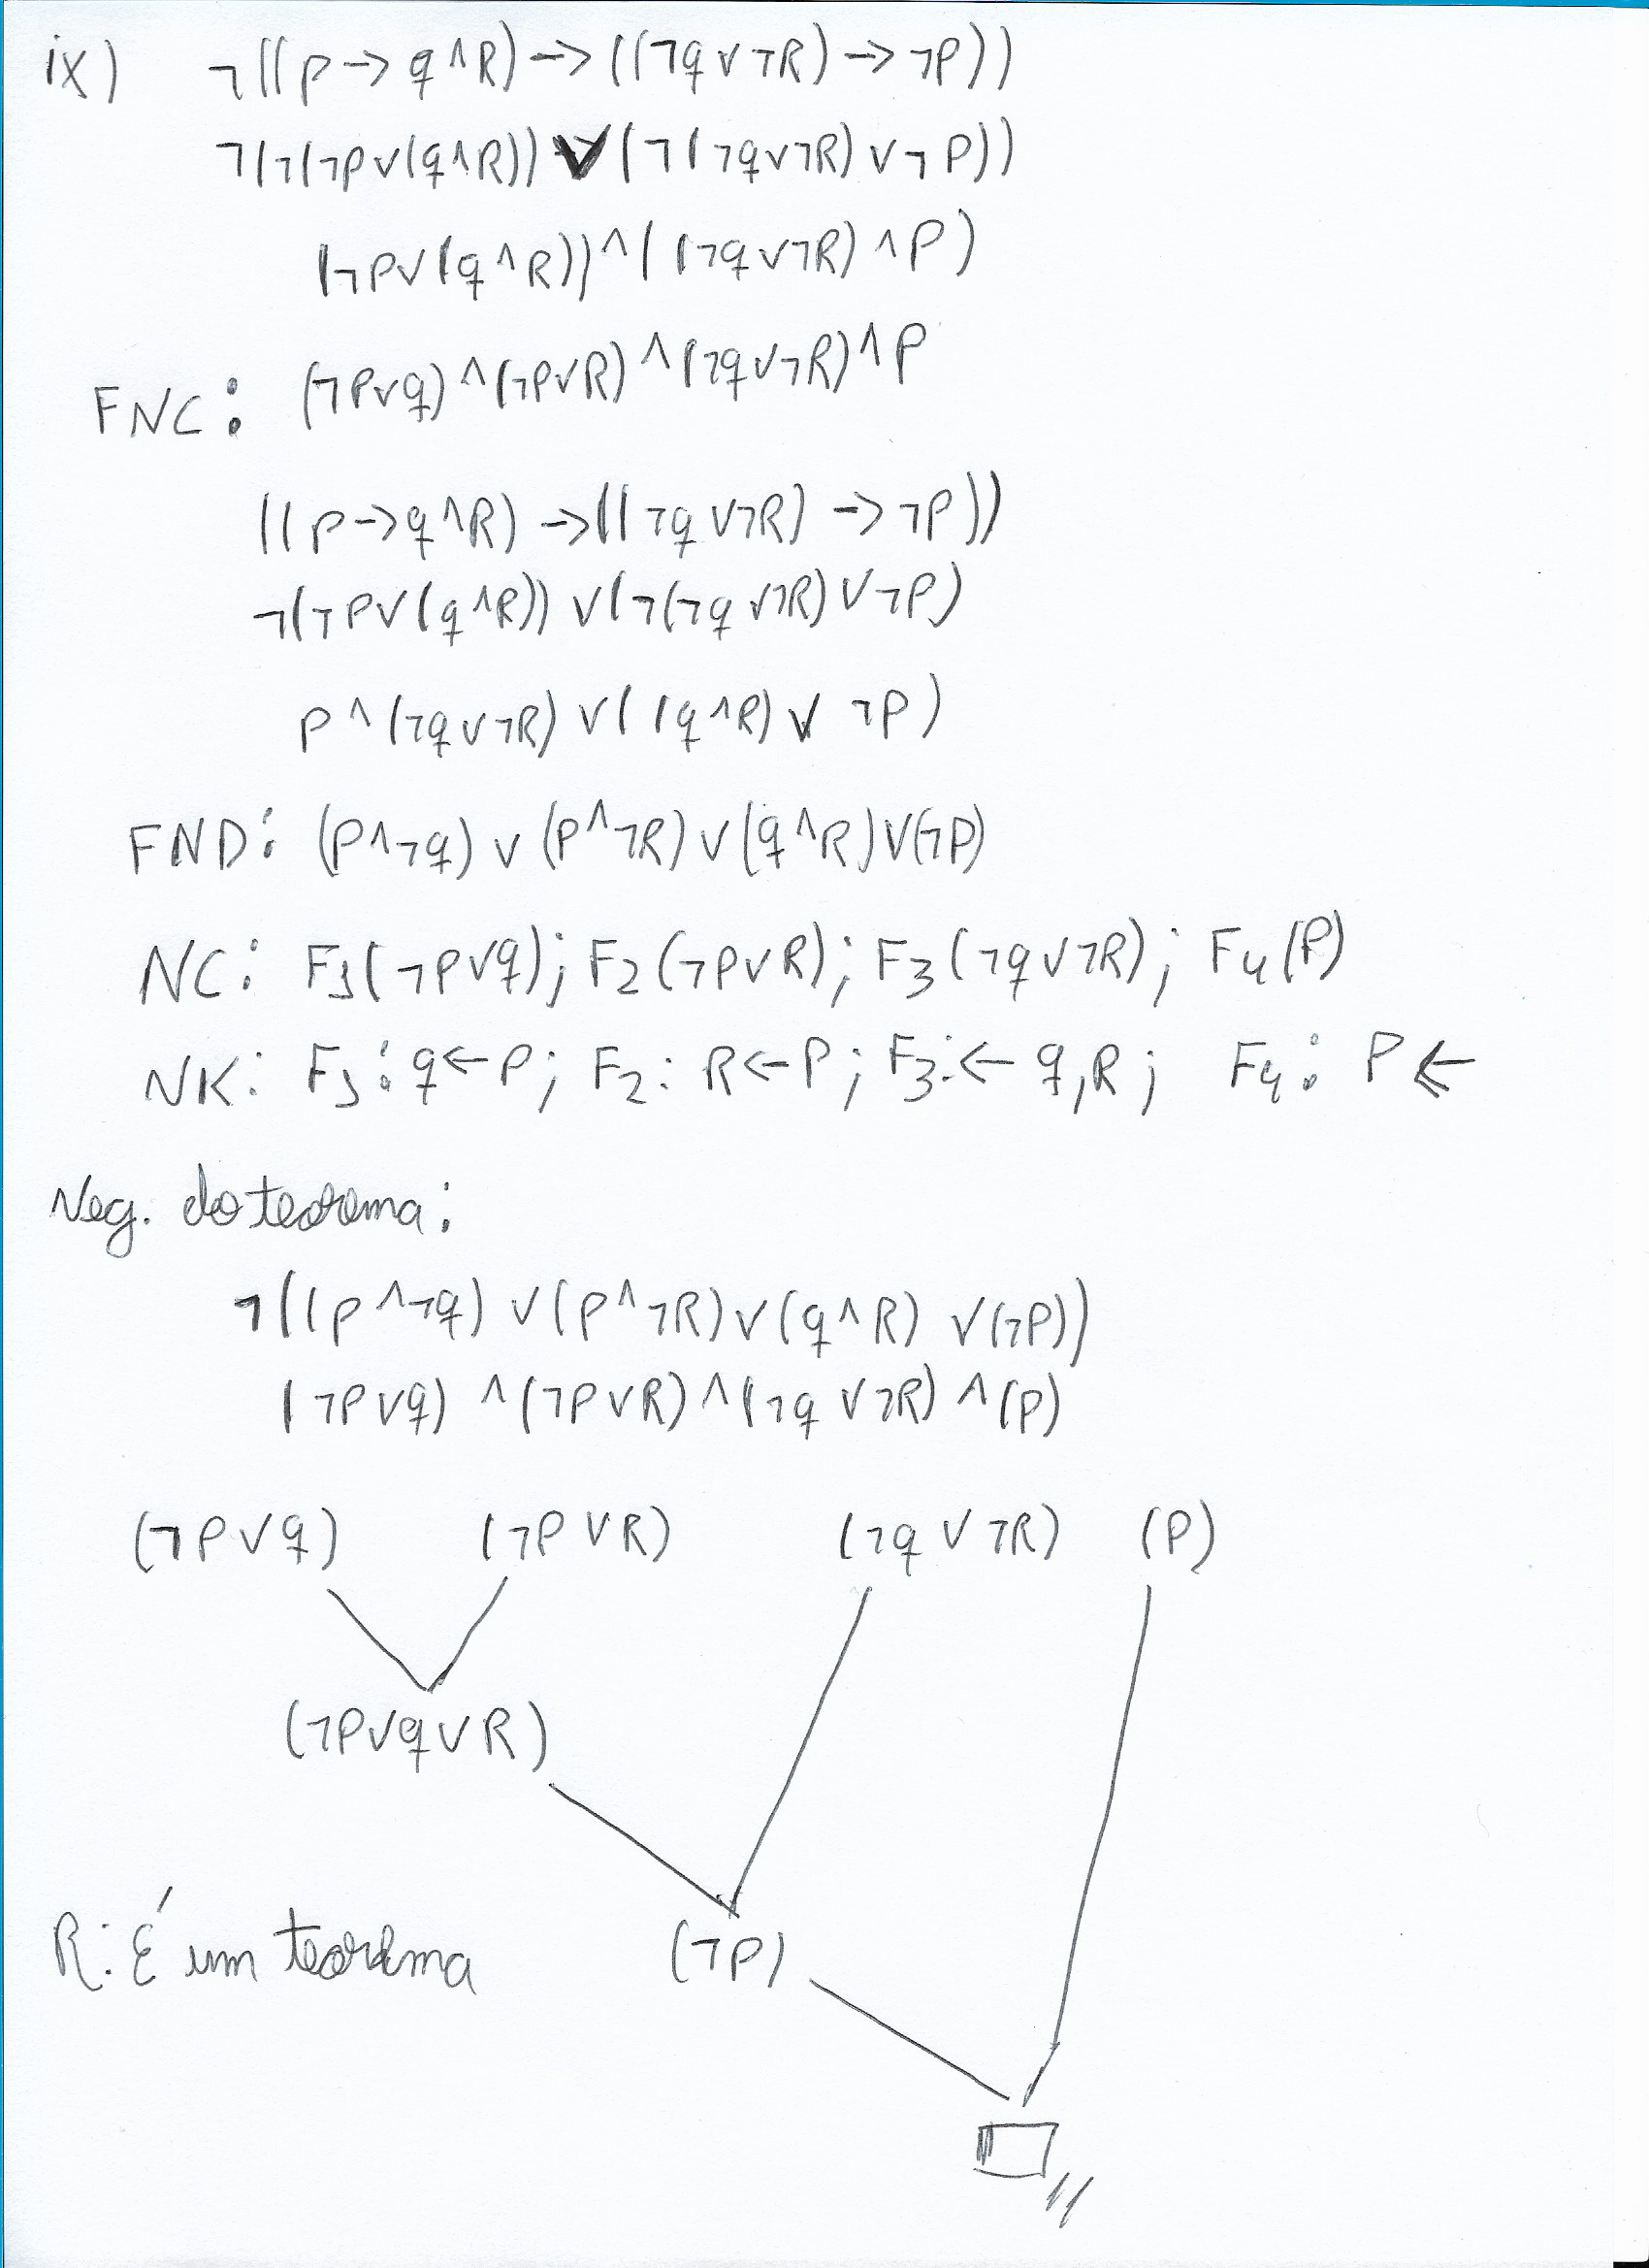 ix) ¬((p→q^R)→((¬q∨¬R)→¬P))
¬(¬(¬P∨(q^R))∨(¬(¬q∨¬R)∨¬P))
(¬P∨(q^R))^((¬q∨¬R)^P)
FNC: (¬P∨q)^(¬P∨R)^(¬q∨¬R)^P
((p→q^R)→((¬q∨¬R)→¬P))
¬(¬P∨(q^R))∨(¬(¬q∨¬R)∨¬P)
p^(¬q∨¬R)∨((q^R)∨¬P)
FND: (P^¬q)∨(P^¬R)∨(q^R)∨(¬P)
NC: F1(¬P∨q); F2(¬P∨R); F3(¬q∨¬R); F4(P)
NK: F1: q←P; F2: R←P; F3:← q,R; F4: P←
Neg. do teorema:
¬((p^¬q)∨(P^¬R)∨(q^R)∨(¬P))
(¬P∨q)^(¬P∨R)^(¬q∨¬R)^(P)
(¬P∨q) (¬P∨R) (¬q∨¬R) (P)
(¬P∨q∨R)
R: É um teorema (¬P)